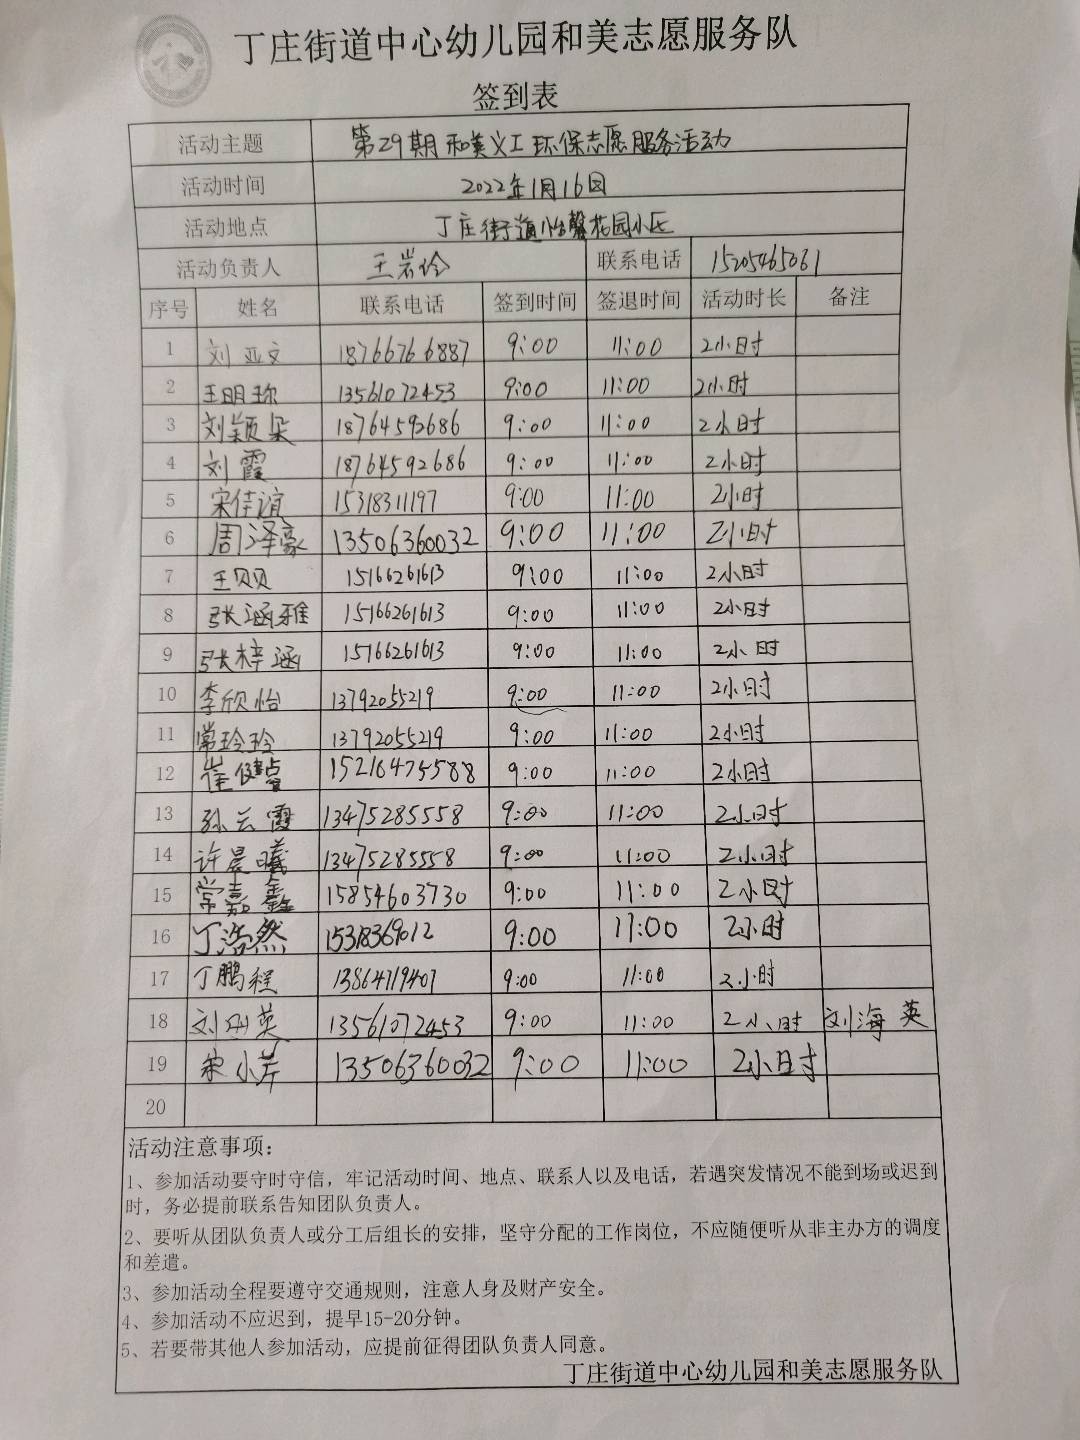 丁庄街道中心幼儿园和美志愿服务队
签到表
活动主题 第29期和美义工环保志愿服务活动
活动时间 2022年1月16日
活动地点 丁庄街道怡馨花园小区
活动负责人 王岩玲 联系电话 15205465061
序号 姓名 联系电话 签到时间 签退时间 活动时长 备注
1 刘亚文 18766766887 9:00 11:00 2小时
2 王明珎 13561072453 9:00 11:00 2小时
3 刘颖朵 18764592686 9:00 11:00 2小时
4 刘霞 18764592686 9:00 11:00 2小时
5 宋佳谊 15318311197 9:00 11:00 2小时
6 周泽豪 13506360032 9:00 11:00 2小时
7 王贝贝 15166261613 9:00 11:00 2小时
8 张涵雅 15166261613 9:00 11:00 2小时
9 张梓涵 15166261613 9:00 11:00 2小时
10 李欣怡 13792055219 9:00 11:00 2小时
11 常玲玲 13792055219 9:00 11:00 2小时
12 崔健睿 15216475588 9:00 11:00 2小时
13 孙云霞 13475285558 9:00 11:00 2小时
14 许晨曦 13475285558 9:00 11:00 2小时
15 常嘉鑫 15854603730 9:00 11:00 2小时
16 丁浩然 15318369012 9:00 11:00 2小时
17 丁鹏程 13864719407 9:00 11:00 2小时
18 刘海英 13561072453 9:00 11:00 2小时 刘海英
19 宋小芹 13506360032 9:00 11:00 2小时
20
活动注意事项：
1、参加活动要守时守信，牢记活动时间、地点、联系人以及电话，若遇突发情况不能到场或迟到
时，务必提前联系告知团队负责人。
2、要听从团队负责人或分工后组长的安排，坚守分配的工作岗位，不应随便听从非主办方的调度
和差遣。
3、参加活动全程要遵守交通规则，注意人身及财产安全。
4、参加活动不应迟到，提早15-20分钟。
5、若要带其他人参加活动，应提前征得团队负责人同意。
丁庄街道中心幼儿园和美志愿服务队